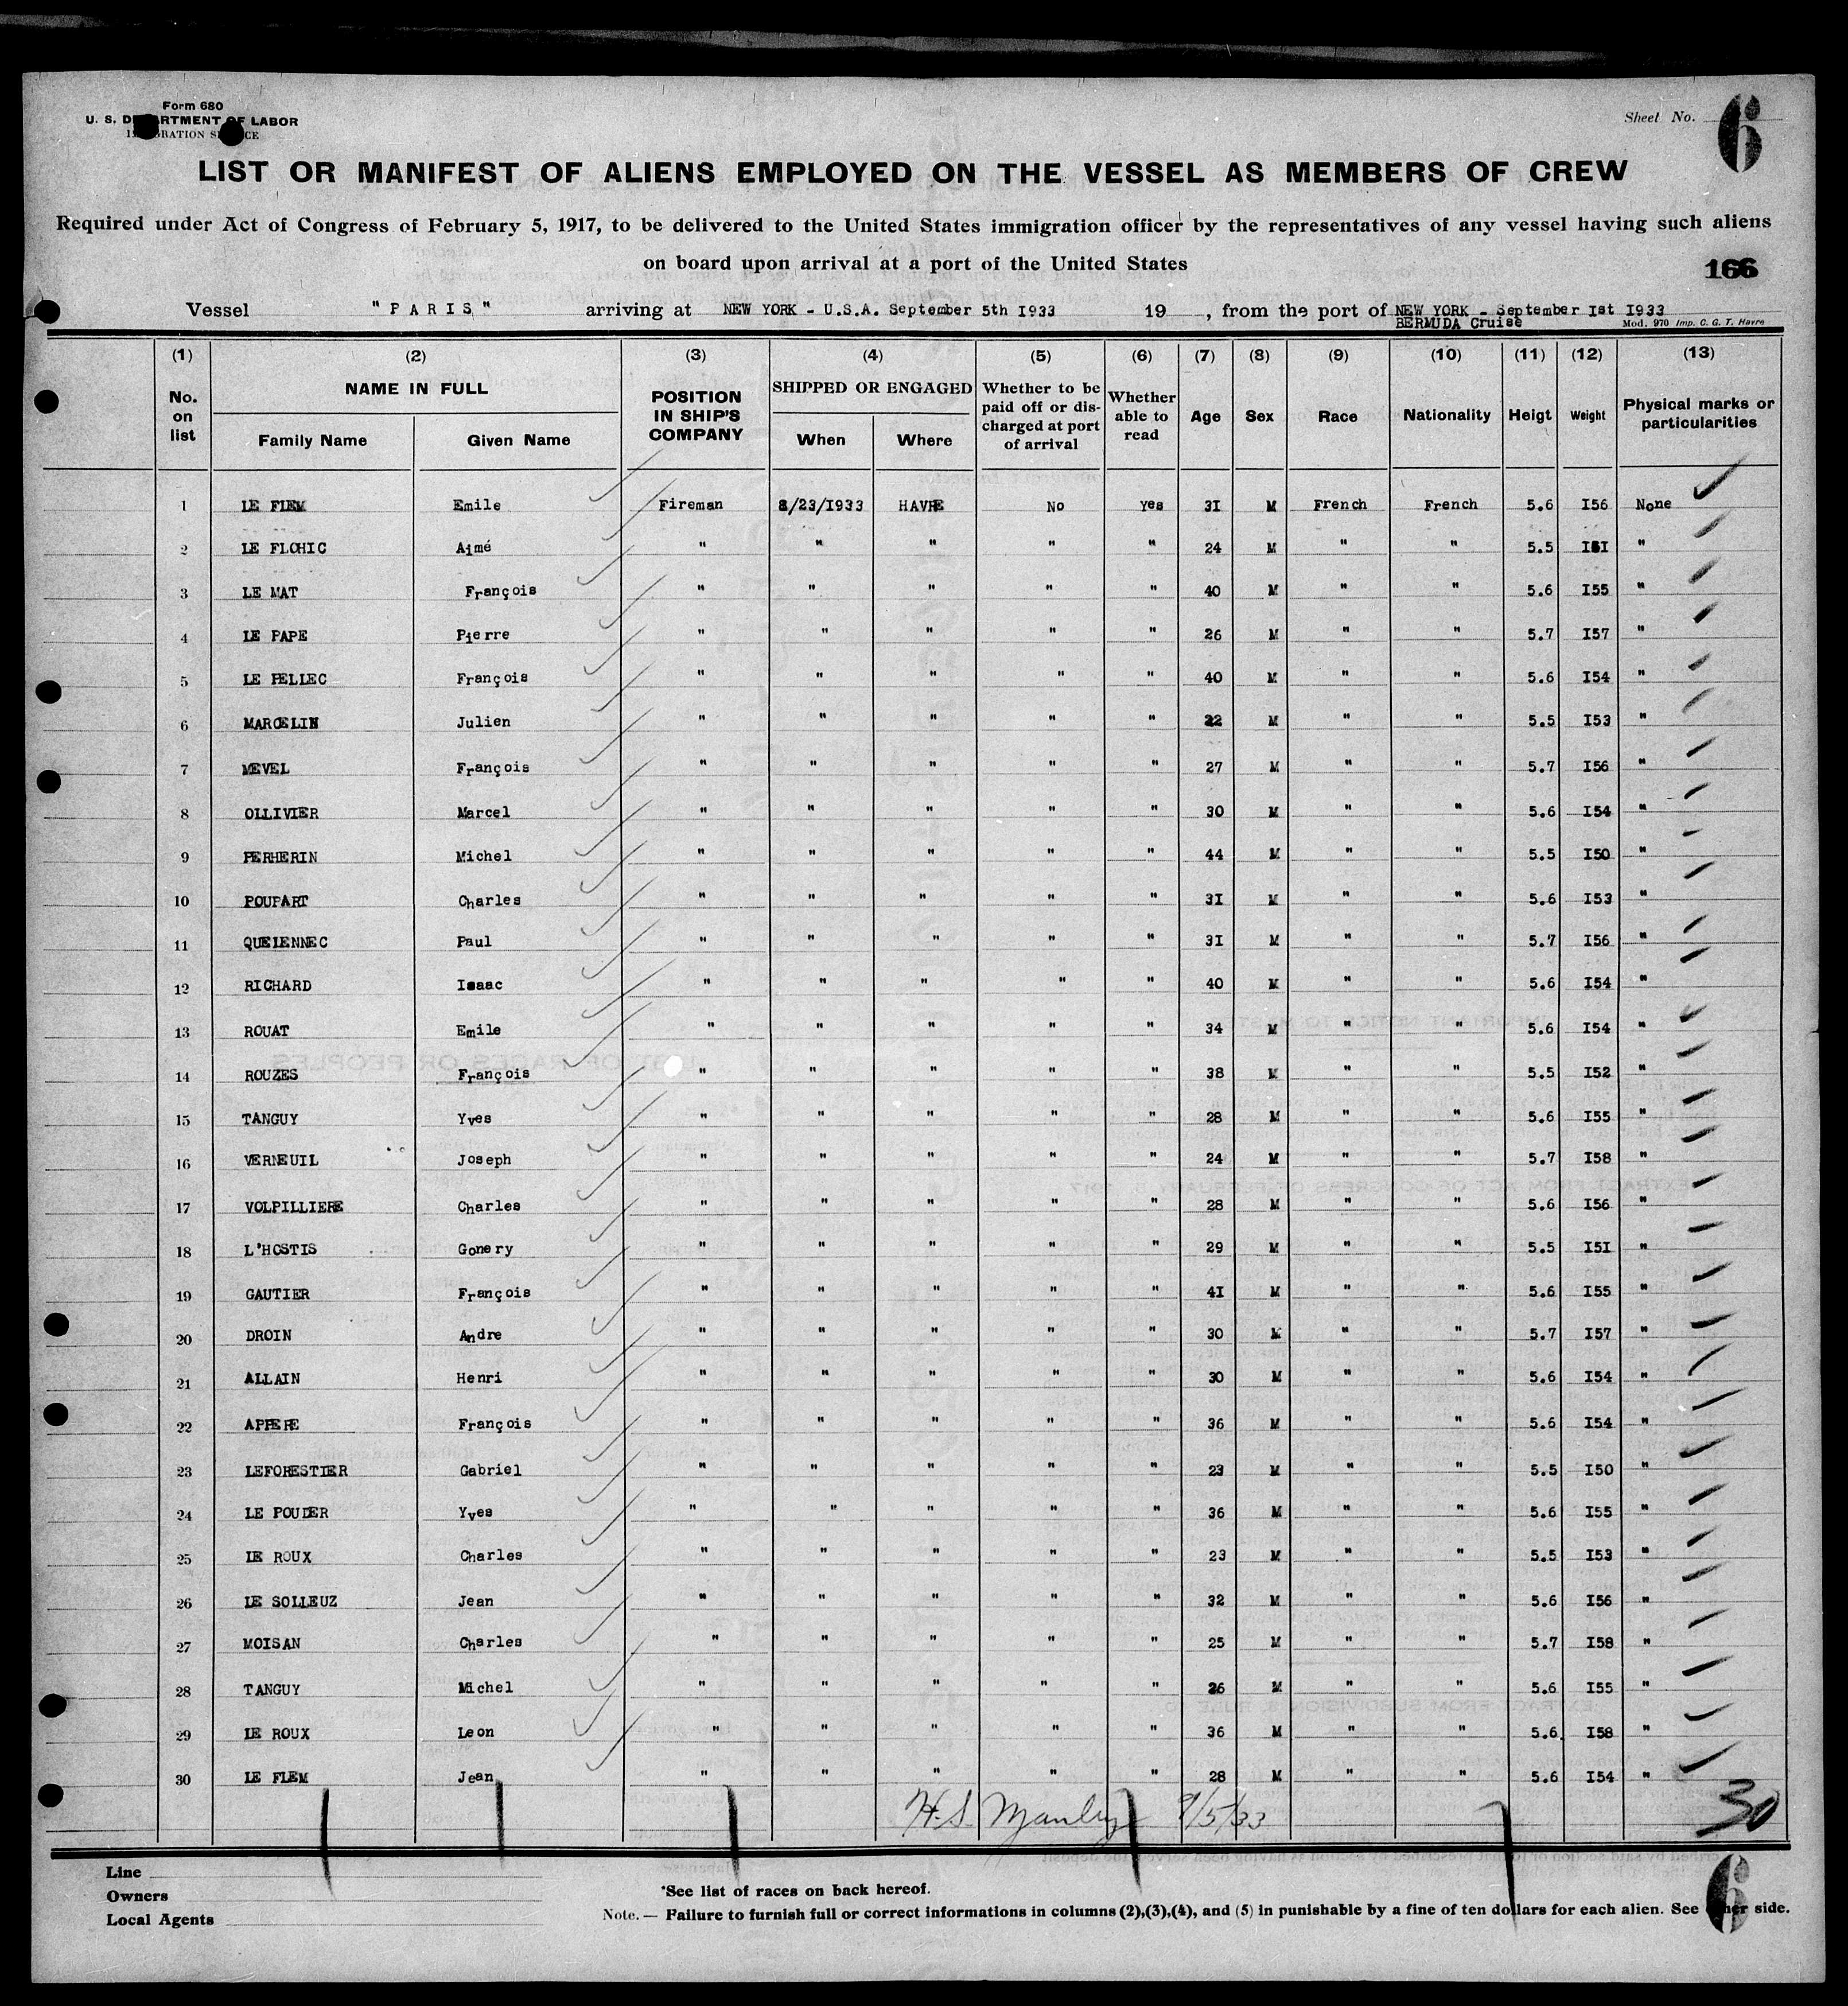 Form 680
U. S. DEPARTMENT OF LABOR
IMMIGRATION SERVICE
Sheet No. 6
LIST OR MANIFEST OF ALIENS EMPLOYED ON THE VESSEL AS MEMBERS OF CREW
Required under Act of Congress of February 5, 1917, to be delivered to the United States immigration officer by the representatives of any vessel having such aliens
on board upon arrival at a port of the United States
166
Vessel "PARIS" arriving at NEW YORK - U.S.A. September 5th I933 19 , from the port of NEW YORK - September Ist I933
BERMUDA Cruise
Mod. 970 Imp. C. G. T. Havre
(1) (2) (3) (4) (5) (6) (7) (8) (9) (10) (11) (12) (13)
No. on list NAME IN FULL Family Name Given Name POSITION IN SHIP'S COMPANY SHIPPED OR ENGAGED When Where Whether to be paid off or discharged at port of arrival Whether able to read Age Sex Race Nationality Heigt Weight Physical marks or particularities
1 LE FLEM Emile Fireman 8/23/I933 HAVRE No Yes 3I M French French 5.6 I56 None
2 LE FLOHIC Aimé " " " " " 24 M " " 5.5 I5I "
3 LE MAT François " " " " " 40 M " " 5.6 I55 "
4 LE PAPE Pierre " " " " " 26 M " " 5.7 I57 "
5 LE PELLEC François " " " " " 40 M " " 5.6 I54 "
6 MARCELIN Julien " " " " " 22 M " " 5.5 I53 "
7 MEVEL François " " " " " 27 M " " 5.7 I56 "
8 OLLIVIER Marcel " " " " " 30 M " " 5.6 I54 "
9 PERHERIN Michel " " " " " 44 M " " 5.5 I50 "
10 POUPART Charles " " " " " 3I M " " 5.6 I53 "
11 QUELENNEC Paul " " " " " 3I M " " 5.7 I56 "
12 RICHARD Isaac " " " " " 40 M " " 5.6 I54 "
13 ROUAT Emile " " " " " 34 M " " 5.6 I54 "
14 ROUZES François " " " " " 38 M " " 5.5 I52 "
15 TANGUY Yves " " " " " 28 M " " 5.6 I55 "
16 VERNEUIL Joseph " " " " " 24 M " " 5.7 I58 "
17 VOLPILLIERE Charles " " " " " 28 M " " 5.6 I56 "
18 L'HOSTIS Gonery " " " " " 29 M " " 5.5 I5I "
19 GAUTIER François " " " " " 4I M " " 5.6 I55 "
20 DROIN Andre " " " " " 30 M " " 5.7 I57 "
21 ALLAIN Henri " " " " " 30 M " " 5.6 I54 "
22 APPERE François " " " " " 36 M " " 5.6 I54 "
23 LEFORESTIER Gabriel " " " " " 23 M " " 5.5 I50 "
24 LE POULER Yves " " " " " 36 M " " 5.6 I55 "
25 LE ROUX Charles " " " " " 23 M " " 5.5 I53 "
26 LE SOLLEUZ Jean " " " " " 32 M " " 5.6 I56 "
27 MOISAN Charles " " " " " 25 M " " 5.7 I58 "
28 TANGUY Michel " " " " " 26 M " " 5.6 I55 "
29 LE ROUX Leon " " " " " 36 M " " 5.6 I58 "
30 LE FLEM Jean " " " " " 28 M " " 5.6 I54 "
H.S. Manley 9/5/33 30
Line
Owners
Local Agents
*See list of races on back hereof.
Note. — Failure to furnish full or correct informations in columns (2),(3),(4), and (5) in punishable by a fine of ten dollars for each alien. See other side.
6